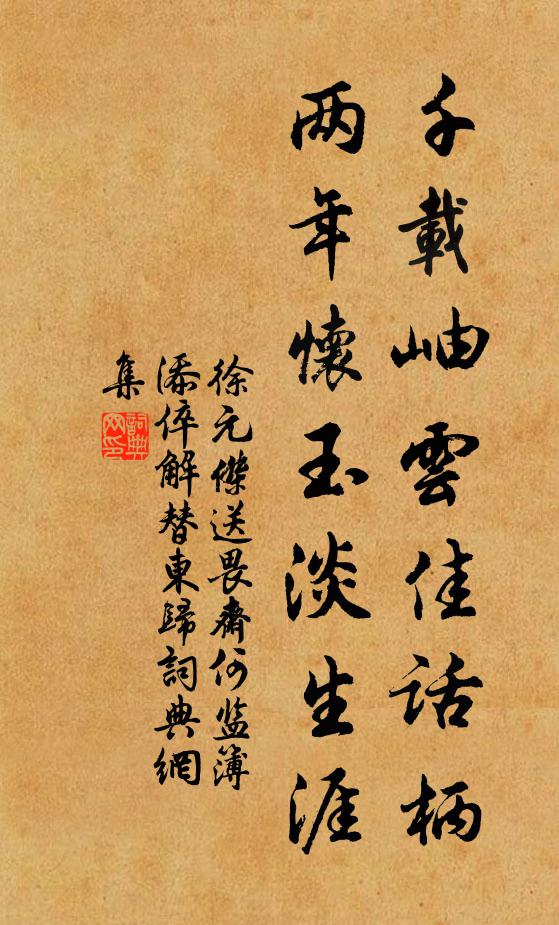 千載岫雲佳話柄
两年懷玉淡生涯
徐元傑送畏齋何监簿
添倅解替東歸詞典網
集
詞典网印